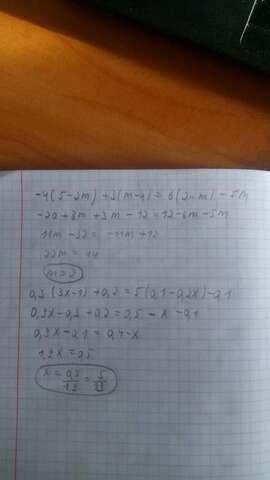 -4(5-2m)+3(m-4)=6(2-m)-5m
-20+8m+3m-12=12-6m-5m
11m-32=-11m+12
22m=44
m=2
0,3(3x-1)+0,2=5(0,1-0,2x)-0,1
0,9x-0,3+0,2=0,5-x-0,1
0,9x-0,1=0,4-x
1,9x=0,5